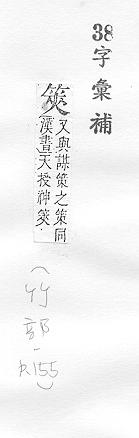 38字彙補
筴 又與謀策之策同
漢書天授神筴
(竹部-P.155)